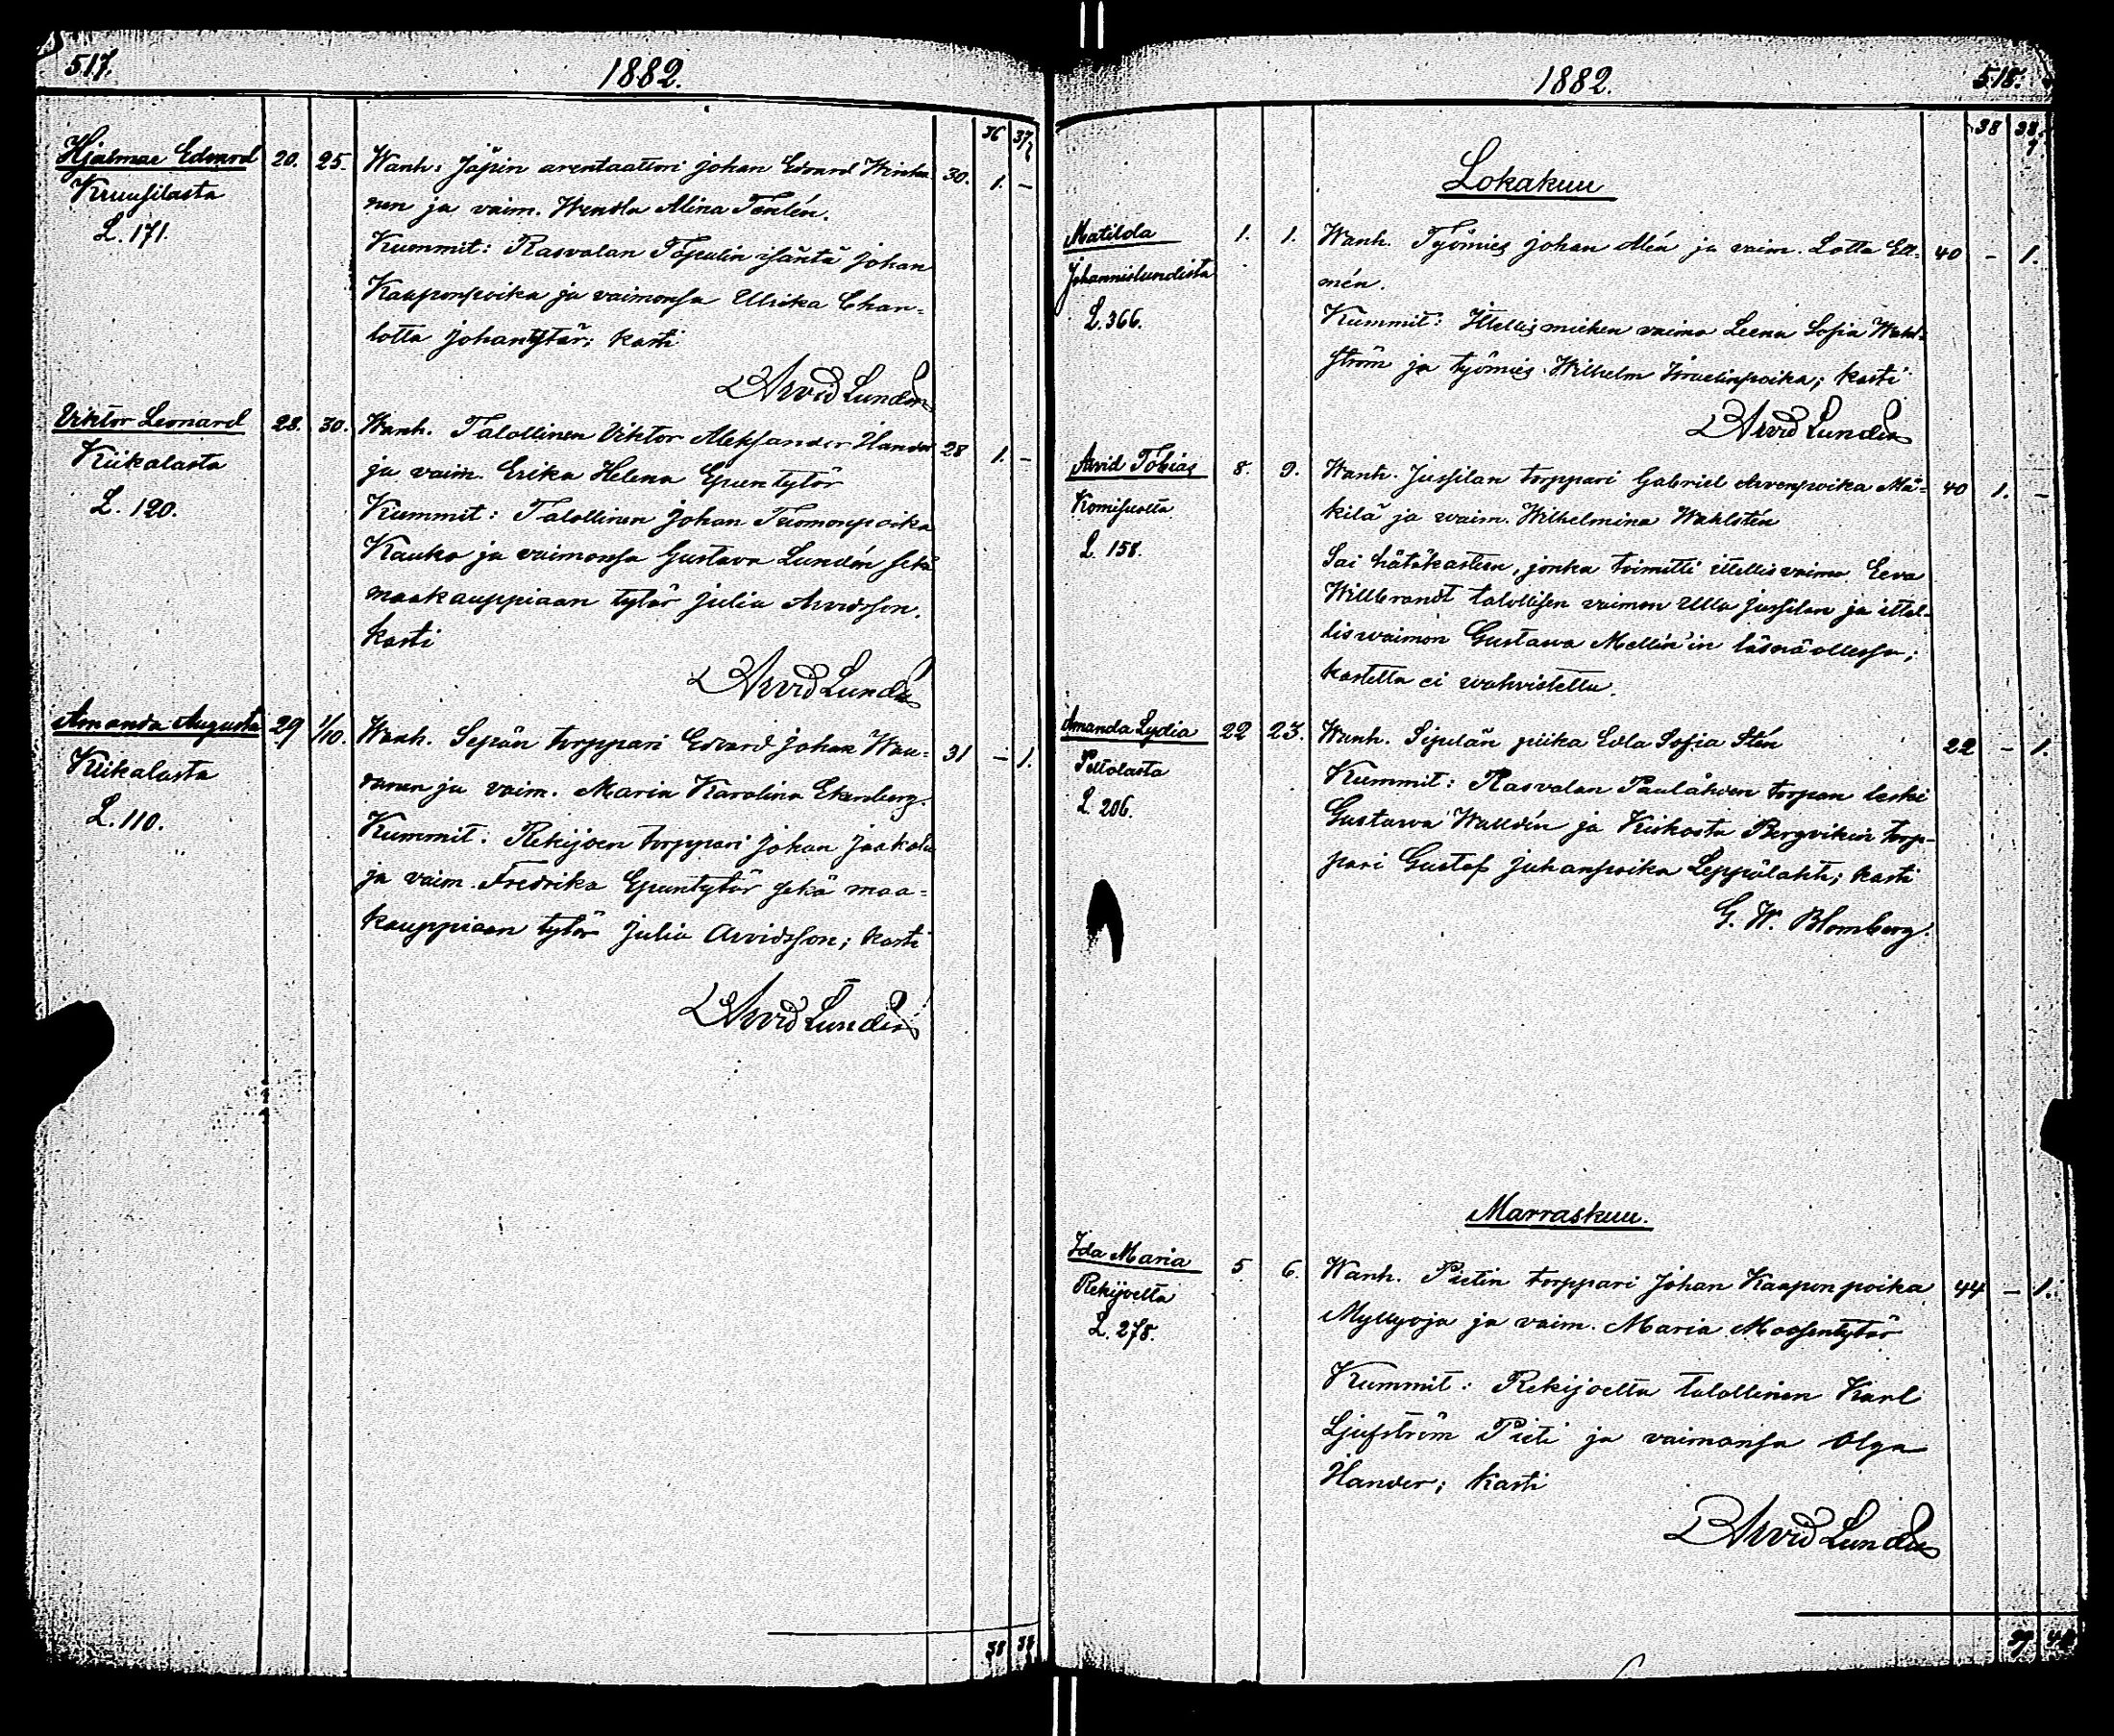 517.
1882.
36 37
Hjalmar Edvard 20. 25. Wanh: Jäpin arentaattori Johan Edvard Winka 30. 1. –
Kruusilasta nen ja vaim. Wendla Alina Tenlén.
L. 171.
Kummit: Rasvalan Töpulin isäntä Johan
Kauponpoika ja vaimonsa Ulrika Char-
lotta Johantytär; kasti
Arvid Lundén
Viktor Leonard 28. 30. Wanh. Talollinen Viktor Aleksander Hander 28 1. –
Kiikalasta ja vaim. Erika Helena Epuntytär
L. 120. Kummit: Talollinen Johan Tuomonpoika
Kauko ja vaimonsa Gustava Lundén sekä
maakauppiaan tytär Julia Arvidsson.
kasti
Arvid Lundén
Amanda Augusta 29 1/10. Wanh. Sepän torppari Edvard Johan Wau- 31 – 1.
Kiikalasta ranen ja vaim. Maria Karolina Ekenberg.
L. 110. Kummit: Rekijoen torppari Johan Jaakola
ja vaim. Fredrika Epuntytär sekä maa-
kauppiaan tytär Julia Arvidsson; kasti
Arvid Lundén
38 38
1882.
518.
38 38
1
Lokakuu
Matilda 1. 1. Wanh. Työmies Johan Alén ja vaim. Lotta Ek- 40 – 1.
Johannislundista mén.
L. 366. Kummit: Ittellismiehen vaimo Leena Sofia Wahl-
ström ja työmies Wilhelm Israelinpoika; kasti
Arvid Lundén
Arvid Tobias 8. 9. Wanh. Jussilan torppari Gabriel Arvenpoika Mä- 40 1. –
Komisuolta kilä ja vaim. Wilhelmina Wahlstén
L. 158. Sai hätäkasteen, jonka toimitti ittellisvaimo Eeva
Willbrandt talollisen vaimon Ulla Jussilan ja ittel-
lisvaimon Gustava Mellin'in läsnä ollessa;
kastetta ei wahvistettu.
Amanda Lydia 22 23. Wanh. Sipilän piika Edla Sofia Stén 22 – 1.
Peltolasta Kummit: Rasvalan Paulähden torpan leski
L. 206. Gustava Walldén ja Kiikosta Bergvikin torp-
pari Gustaf Juhanpoika Leppälahti; kasti
G. W. Blomberg.
Marraskuu.
Ida Maria 5. 6. Wanh. Pietin torppari Johan Kaaponpoika 44 – 1.
Rekijoelta Myllyoja ja vaim. Maria Moosentytär
L. 278.
Kummit: Rekijoelta talollinen Karl
Ljufström Pieti ja vaimonsa Olga
Hander; kasti
Arvid Lundén